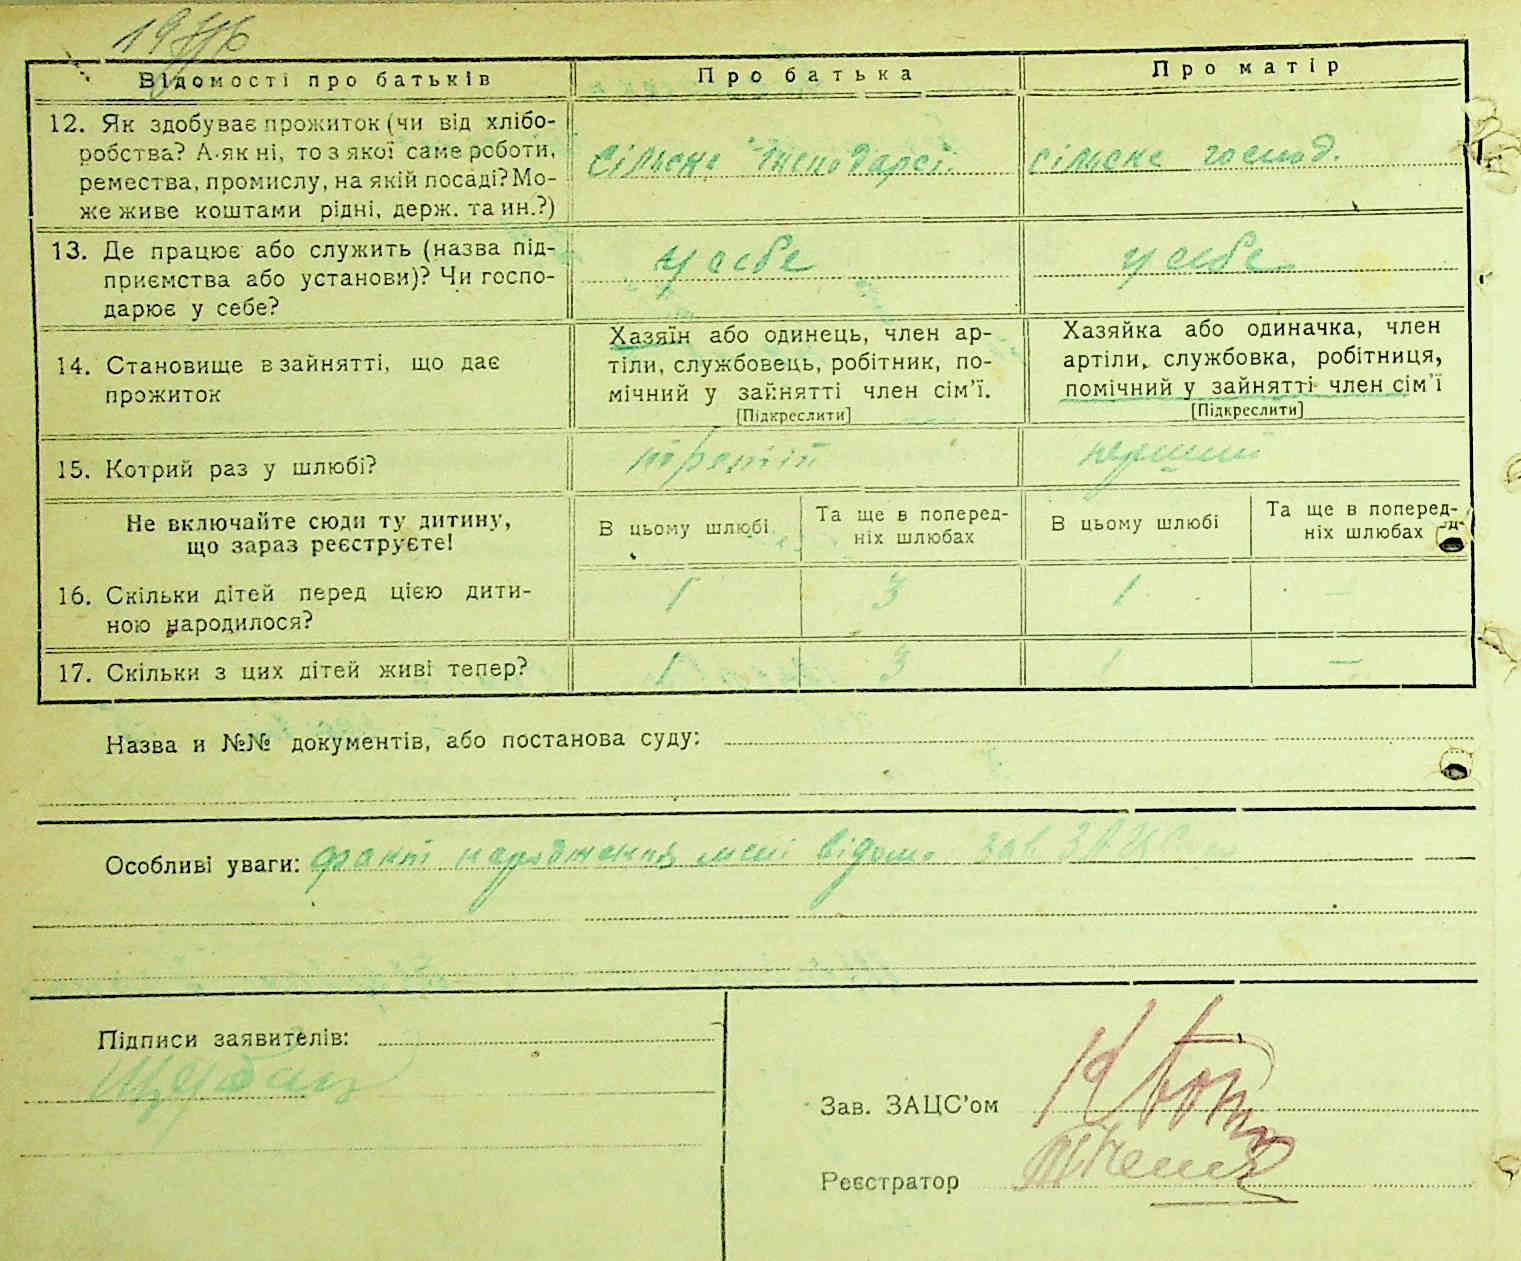 Відомості про батьків
Про батька
Про матір
12. Як здобуває прожиток (чи від хлібо-
робства? А як ні, то з якої саме роботи,
ремества, промислу, на якій посаді? Мо-
же живе коштами рідні, держ. та ин.?)
сільске господарсі.
сільске господ.
13. Де працює або служить (назва під-
приємства або установи)? Чи госпо-
дарює у себе?
у себе
у себе
14. Становище в зайнятті, що дає
прожиток
Хазяїн або одинець, член ар-
тіли, службовець, робітник, по-
мічний у зайнятті член сім'ї.
[Підкреслити]
Хазяйка або одиначка, член
артіли, службовка, робітниця,
помічний у зайнятті член сім'ї
[Підкреслити]
15. Котрий раз у шлюбі?
третій
перший
Не включайте сюди ту дитину,
що зараз реєструєте!
В цьому шлюбі
Та ще в поперед-
ніх шлюбах
В цьому шлюбі
Та ще в поперед-
ніх шлюбах
16. Скільки дітей перед цією дити-
ною народилося?
1
3
1
—
17. Скільки з цих дітей живі тепер?
1
3
1
—
Назва и №№ документів, або постанова суду:
Особливі уваги: факт народження мені відомо зав ЗАЦС
Підписи заявителів:
Щербан
Зав. ЗАЦС'ом
Реєстратор